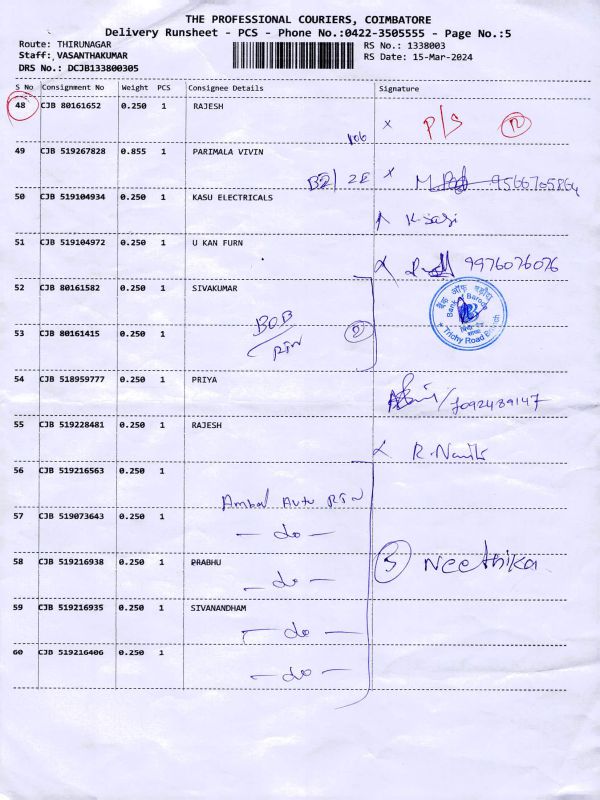 THE PROFESSIONAL COURIERS, COIMBATORE
Delivery Runsheet - PCS - Phone No.:0422-3505555 - Page No.:5
Route: THIRUNAGAR
RS No.: 1338003
Staff: VASANTHAKUMAR
RS Date: 15-Mar-2024
DRS No.: DCJB133800305
S No Consignment No Weight PCS Consignee Details Signature
48 CJB 80161652 0.250 1 RAJESH
P/S
49 CJB 519267828 0.855 1 PARIMALA VIVIN
9566705864
50 CJB 519104934 0.250 1 KASU ELECTRICALS
51 CJB 519104972 0.250 1 U KAN FURN
9976076076
52 CJB 80161582 0.250 1 SIVAKUMAR
BOB
RTN
बैंक ऑफ़ बड़ौदा
Bank of Baroda
Trichy Road Branch
53 CJB 80161415 0.250 1
54 CJB 518959777 0.250 1 PRIYA
7092489147
55 CJB 519228481 0.250 1 RAJESH
56 CJB 519216563 0.250 1
Ambal Auto RTN
57 CJB 519073643 0.250 1
— do —
58 CJB 519216938 0.250 1 PRABHU
5 Neethika
— do —
59 CJB 519216935 0.250 1 SIVANANDHAM
— do —
60 CJB 519216406 0.250 1
— do —